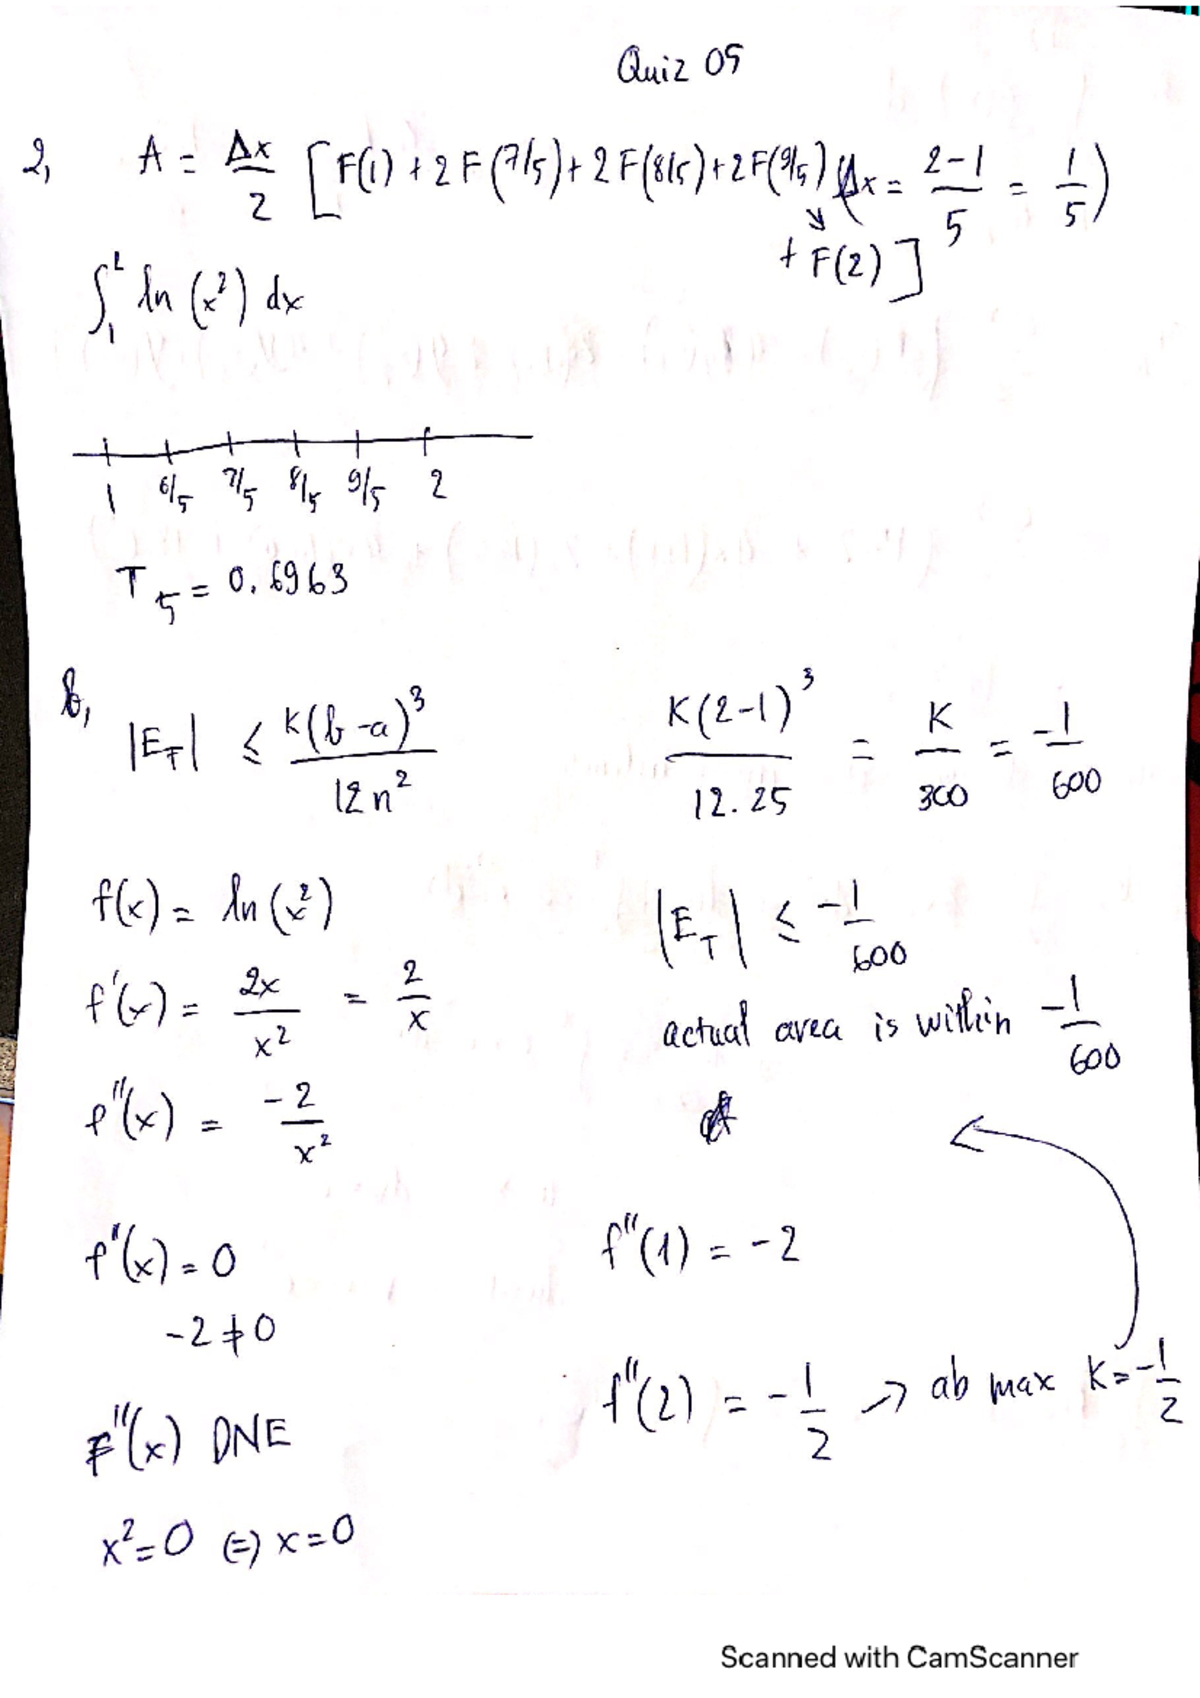 Quiz 05
2, A = Δx/2 [F(1) + 2F(7/5) + 2F(8/5) + 2F(9/5) (Δx = 2-1/5 = 1/5)
+ F(2)]
∫₁² ln(x²) dx
1 6/5 7/5 8/5 9/5 2
T₅ = 0.6963
b, |E_T| ≤ K(b-a)³/12n² K(2-1)³/12.25 = K/300 = -1/600
f(x) = ln(x²)
|E_T| ≤ -1/600
f'(x) = 2x/x² = 2/x
actual area is within -1/600
f''(x) = -2/x²
f''(x) = 0
f''(1) = -2
-2 ≠ 0
f''(2) = -1/2 → ab max K = -1/2
F''(x) DNE
x² = 0 (=) x = 0
Scanned with CamScanner